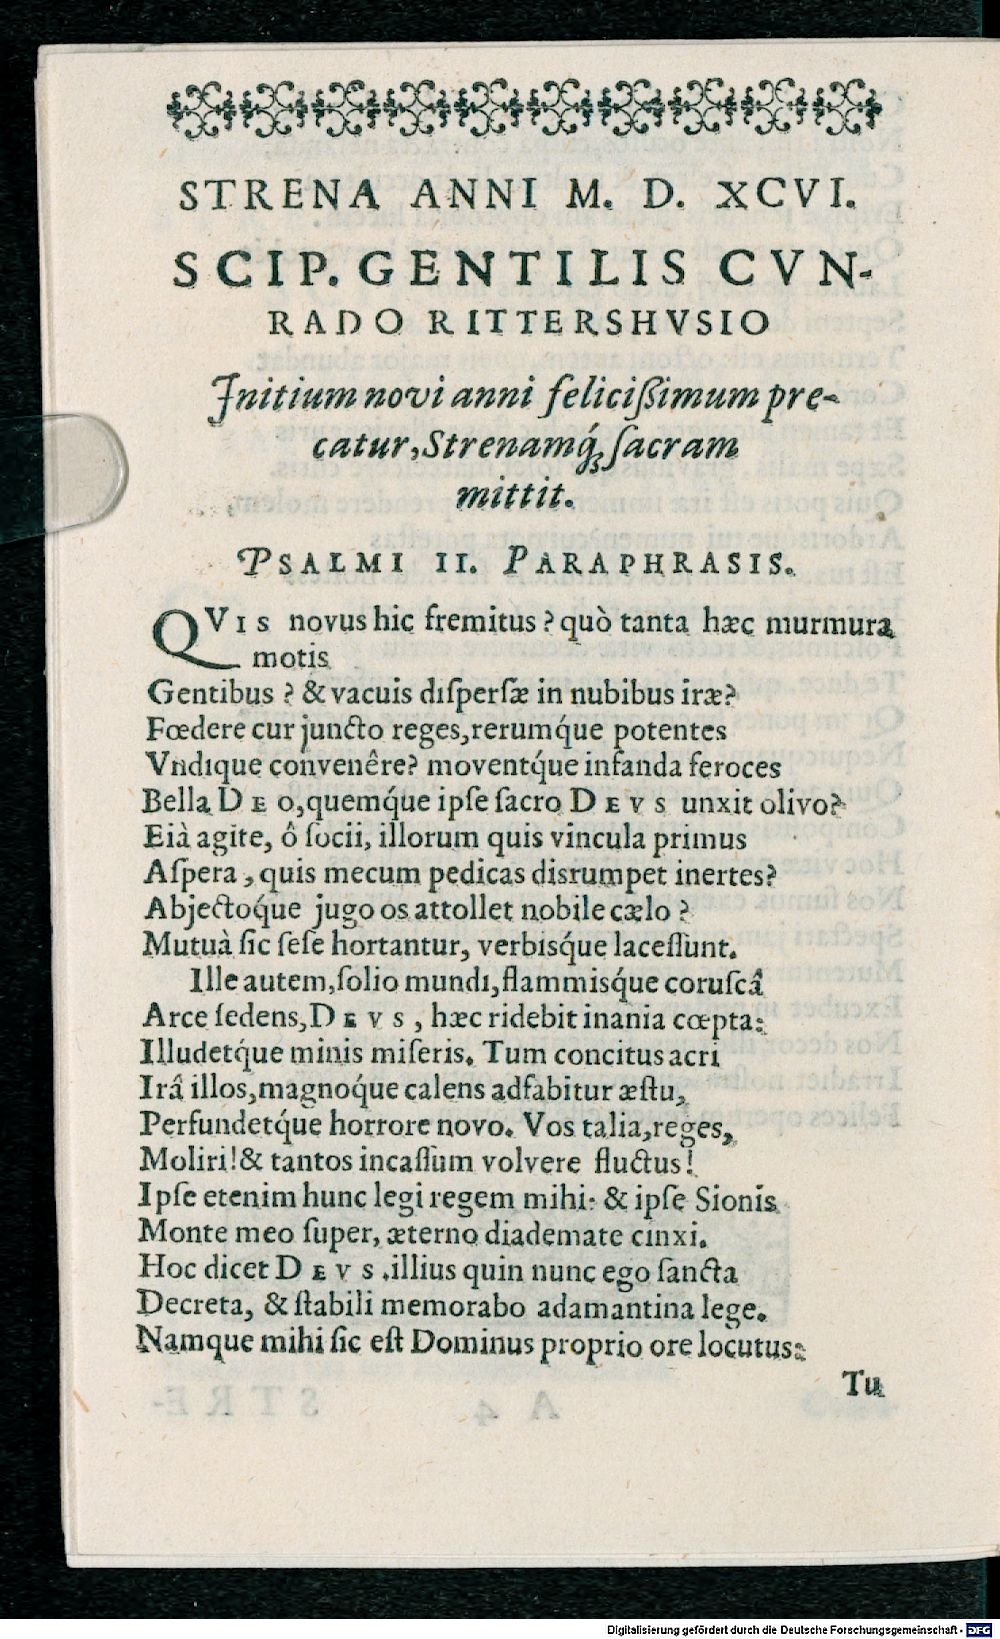 STRENA ANNI M. D. XCVI.
SCIP. GENTILIS CVN-
RADO RITTERSHVSIO
Initium novi anni felicißimum pre-
catur, Strenamq́; ſacram
mittit.
PSALMI II. PARAPHRASIS.
QVIS novus hic fremitus? quò tanta hæc murmura
motis
Gentibus? & vacuis diſperſæ in nubibus iræ?
Fœdere cur juncto reges, rerumq́ue potentes
Vndique convenêre? moventq́ue infanda feroces
Bella DEO, quemq́ue ipſe ſacro DEVS unxit olivo?
Eià agite, ô ſocii, illorum quis vincula primus
Aſpera, quis mecum pedicas disrumpet inertes?
Abjectoq́ue jugo os attollet nobile cælo?
Mutuà ſic ſeſe hortantur, verbisq́ue laceſſunt.
Ille autem, ſolio mundi, flammisq́ue coruſcâ
Arce ſedens, DEVS, hæc ridebit inania cœpta:
Illudetq́ue minis miſeris. Tum concitus acri
Irâ illos, magnoq́ue calens adfabitur æſtu,
Perfundetq́ue horrore novo. Vos talia, reges,
Moliri! & tantos incaſſum volvere fluctus!
Ipſe etenim hunc legi regem mihi: & ipſe Sionis
Monte meo ſuper, æterno diademate cinxi.
Hoc dicet DEVS. illius quin nunc ego ſancta
Decreta, & ſtabili memorabo adamantina lege.
Namque mihi ſic eſt Dominus proprio ore locutus:
Tu
Digitalisierung gefördert durch die Deutsche Forschungsgemeinschaft - DFG